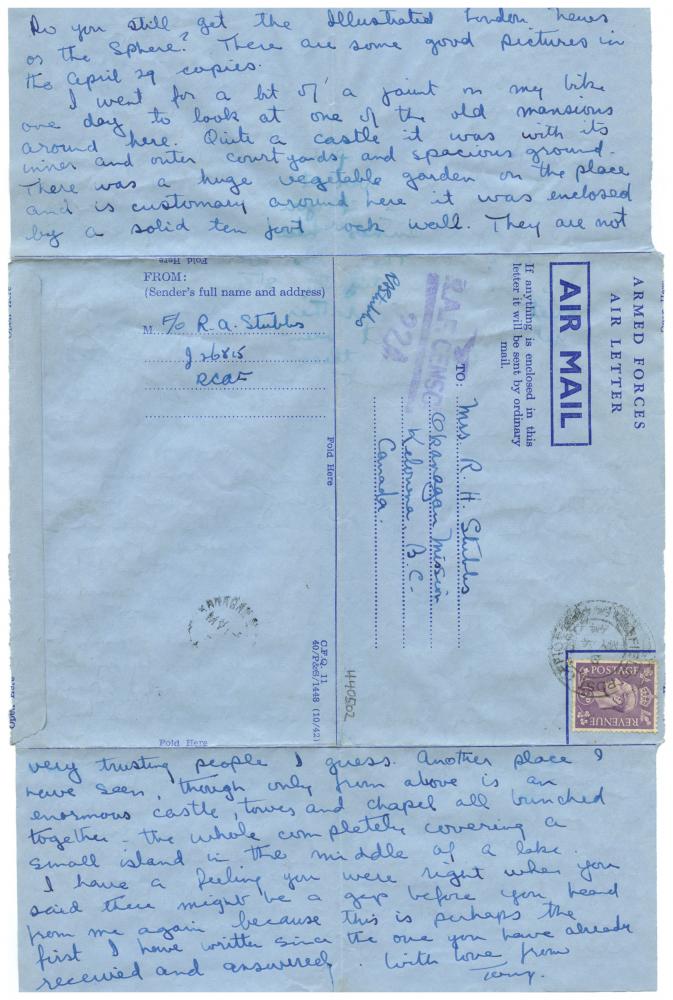 Do you still get the Illustrated London News
or the Sphere? There are some good pictures in
the April 29 copies.
I went for a bit of a jaunt on my bike
one day to look at one of the old mansions
around here. Quite a castle it was with its
inner and outer courtyards and spacious ground.
There was a huge vegetable garden on the place
and is customary around here it was enclosed
by a solid ten foot rock wall. They are not
Fold Here
FROM:
(Sender's full name and address)
M F/O R. A. Stubbs
J26815
RCAF
ARMED FORCES
AIR LETTER
AIR MAIL
If anything is enclosed in this
letter it will be sent by ordinary
mail.
TO:
Mrs R. H. Stubbs
Okanagan Mission
Kelowna, B.C.
Canada.
RAStubbs
R.A.F. CENSOR
224
Fold Here
C.F.Q. 11
40/P&S/1448 (10/42)
440502
POSTAGE
REVENUE
Open Here
Fold Here
very trusting people I guess. Another place I
have seen, though only from above is an
enormous castle, towers and chapel all bunched
together - the whole completely covering a
small island in the middle of a lake.
I have a feeling you were right when you
said there might be a gap before you heard
from me again because this is perhaps the
first I have written since the one you have already
received and answered. With love from
Tony.